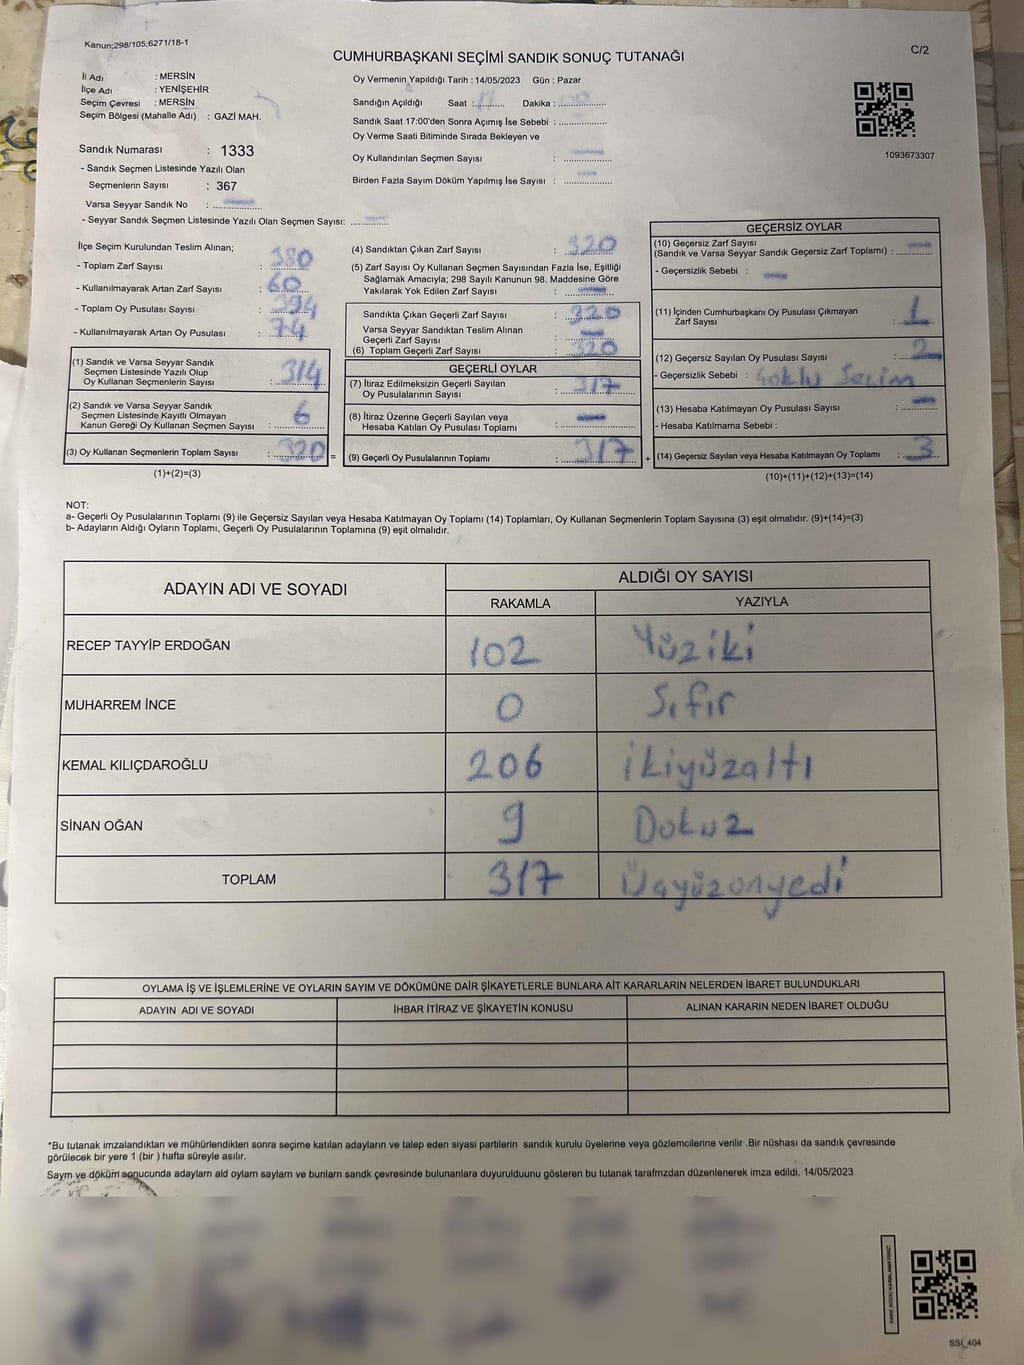 Kanun;298/105;6271/18-1
CUMHURBAŞKANI SEÇİMİ SANDIK SONUÇ TUTANAĞI
C/2
İl Adı : MERSİN
İlçe Adı : YENİŞEHİR
Seçim Çevresi : MERSİN
Seçim Bölgesi (Mahalle Adı) : GAZİ MAH.
Sandık Numarası : 1333
- Sandık Seçmen Listesinde Yazılı Olan
Seçmenlerin Sayısı : 367
Varsa Seyyar Sandık No :
- Seyyar Sandık Seçmen Listesinde Yazılı Olan Seçmen Sayısı:
Oy Vermenin Yapıldığı Tarih : 14/05/2023 Gün : Pazar
Sandığın Açıldığı Saat : Dakika :
Sandık Saat 17:00'den Sonra Açımış İse Sebebi :
Oy Verme Saati Bitiminde Sırada Bekleyen ve
Oy Kullandırılan Seçmen Sayısı :
Birden Fazla Sayım Döküm Yapılmış İse Sayısı :
1093673307
İlçe Seçim Kurulundan Teslim Alınan;
- Toplam Zarf Sayısı : 380
- Kullanılmayarak Artan Zarf Sayısı : 60
- Toplam Oy Pusulası Sayısı : 394
- Kullanılmayarak Artan Oy Pusulası : 74
(1) Sandık ve Varsa Seyyar Sandık
Seçmen Listesinde Yazılı Olup
Oy Kullanan Seçmenlerin Sayısı : 314
(2) Sandık ve Varsa Seyyar Sandık
Seçmen Listesinde Kayıtlı Olmayan
Kanun Gereği Oy Kullanan Seçmen Sayısı : 6
(3) Oy Kullanan Seçmenlerin Toplam Sayısı : 320 =
(1)+(2)=(3)
(4) Sandıktan Çıkan Zarf Sayısı : 320
(5) Zarf Sayısı Oy Kullanan Seçmen Sayısından Fazla İse, Eşitliği
Sağlamak Amacıyla; 298 Sayılı Kanunun 98. Maddesine Göre
Yakılarak Yok Edilen Zarf Sayısı :
Sandıkta Çıkan Geçerli Zarf Sayısı : 320
Varsa Seyyar Sandıktan Teslim Alınan
Geçerli Zarf Sayısı :
(6) Toplam Geçerli Zarf Sayısı : 320
GEÇERLİ OYLAR
(7) İtiraz Edilmeksizin Geçerli Sayılan
Oy Pusulalarının Sayısı : 317
(8) İtiraz Üzerine Geçerli Sayılan veya
Hesaba Katılan Oy Pusulası Toplamı :
(9) Geçerli Oy Pusulalarının Toplamı : 317 +
GEÇERSİZ OYLAR
(10) Geçersiz Zarf Sayısı
(Sandık ve Varsa Seyyar Sandık Geçersiz Zarf Toplamı) :
- Geçersizlik Sebebi :
(11) İçinden Cumhurbaşkanı Oy Pusulası Çıkmayan
Zarf Sayısı : 1
(12) Geçersiz Sayılan Oy Pusulası Sayısı : 2
- Geçersizlik Sebebi : Çoklu Seçim
(13) Hesaba Katılmayan Oy Pusulası Sayısı :
- Hesaba Katılmama Sebebi :
(14) Geçersiz Sayılan veya Hesaba Katılmayan Oy Toplamı : 3
(10)+(11)+(12)+(13)=(14)
NOT:
a- Geçerli Oy Pusulalarının Toplamı (9) ile Geçersiz Sayılan veya Hesaba Katılmayan Oy Toplamı (14) Toplamları, Oy Kullanan Seçmenlerin Toplam Sayısına (3) eşit olmalıdır. (9)+(14)=(3)
b- Adayların Aldığı Oyların Toplamı, Geçerli Oy Pusulalarının Toplamına (9) eşit olmalıdır.
ADAYIN ADI VE SOYADI
ALDIĞI OY SAYISI
RAKAMLA YAZIYLA
RECEP TAYYİP ERDOĞAN 102 Yüziki
MUHARREM İNCE 0 Sıfır
KEMAL KILIÇDAROĞLU 206 ikiyüzaltı
SİNAN OĞAN 9 Dokuz
TOPLAM 317 Üçyüzonyedi
OYLAMA İŞ VE İŞLEMLERİNE VE OYLARIN SAYIM VE DÖKÜMÜNE DAİR ŞİKAYETLERLE BUNLARA AİT KARARLARIN NELERDEN İBARET BULUNDUKLARI
ADAYIN ADI VE SOYADI İHBAR İTİRAZ VE ŞİKAYETİN KONUSU ALINAN KARARIN NEDEN İBARET OLDUĞU
*Bu tutanak imzalandıktan ve mühürlendikten sonra seçime katılan adayların ve talep eden siyasi partilerin sandık kurulu üyelerine veya gözlemcilerine verilir .Bir nüshası da sandık çevresinde
görülecek bir yere 1 (bir ) hafta süreyle asılır.
Sayım ve döküm sonucunda adaylarn ald oylarn saylarn ve bunlarn sandk çevresinde bulunanlara duyurulduunu gösteren bu tutanak tarafmzdan düzenlenerek imza edildi. 14/05/2023
SSI_404